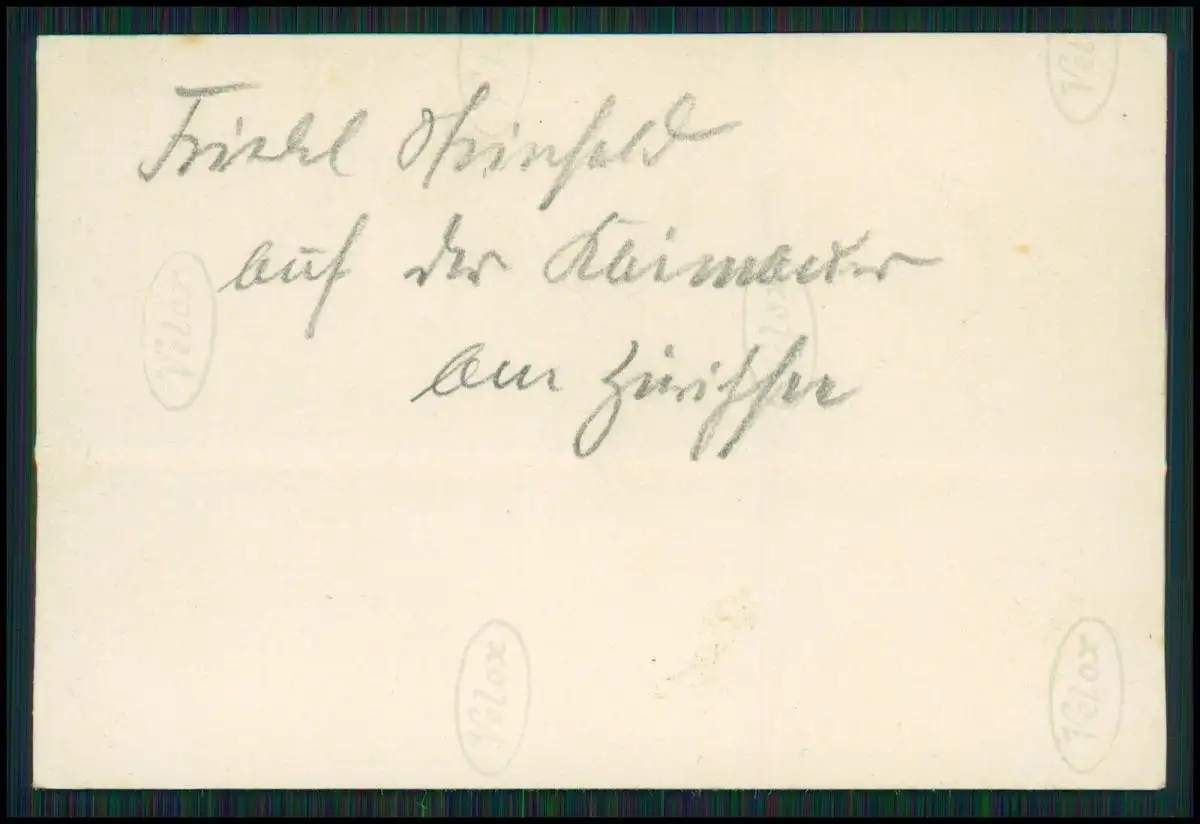 Friedel Steinfeld
auf der Kaimauer
am Zürichsee
Velox
Velox
Velox
Velox